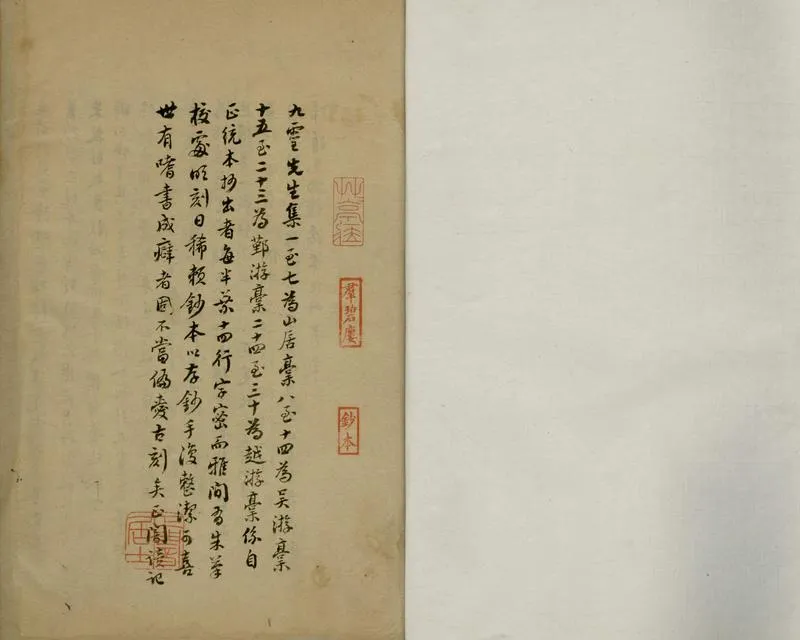 九靈先生集一至七為山居稾八至十四為吴游稾
十五至二十三為鄞游稾二十四至三十為越游稾係自
正統本抄出者每半葉十四行字密而雅間有朱筆
校處明刻日稀賴鈔本以存鈔手復整潔可喜
世有嗜書成癖者固不當偏愛古刻矣正闇讀記
羣碧廔
鈔本
居士